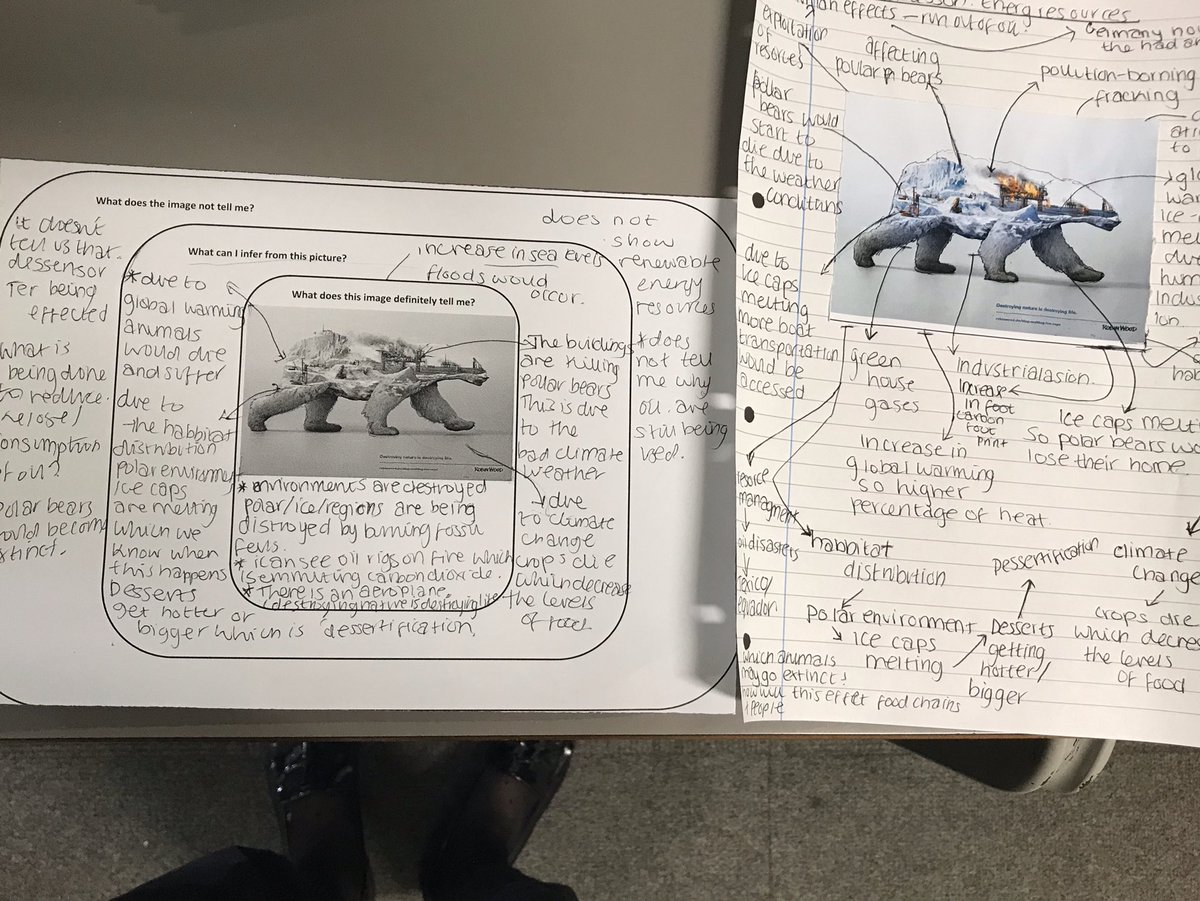 What does the image not tell me?
It doesn't
tell us that.
dessensor
Ter being
effected
What is
being done
to reduce.
consumption
of oil?
Polar bears
could become
extinct.
does not
show
renewable
energy
resources
*does
not tell
me why
oil are
still being
used.
What can I infer from this picture?
increase in sea levels
floods would
occor.
*due to
global warming
animals
would die
and suffer
due to
the habbitat
distribution
Polar enviromny
ice caps
are melting
which we
know when
this happens
Desserts
get hotter or
bigger which is dessertification.
The buildings
are killing
pollar bears
This is due
to the
bad climate
weather
due
to climate
change
crops die
which decrease
the levels
of food
What does this image definitely tell me?
Destroying nature is destroying life.
ROBIN WOOD
* environments are destroyed
polar/ice/regions are being
distroyed by burning fossil
fuels.
* i can see oil rigs on fire which
is emmuting carbon dioxide.
* There is an aeroplane.
(destroying nature is destroying life
energ resources
effects - run out of oil.
Germany
the had
exploitation
of
resorces
affecting
poular bears
pollution-borning
fracking
pollar
bears would
start to
die due to
the weather
conditions
due to
ice caps
melting
more boat
transportation
would be
accessed
Destroying nature is destroying life.
ROBIN WOOD
green
house
gases
Industrialasion.
increase
in foot
carbon
foot
print
Ice caps melt
So polar bears
lose their home
Increase in
global warming
so higher
percentage of heat.
managment
oil disasters
habbitat
distribution
Polar environment
ice caps
melting
pessertification
Desserts
getting
hotter/
bigger
climate
change
crops die
which decrea
the levels
of food
which animals
may go extinct?
how will this effect food chains
people